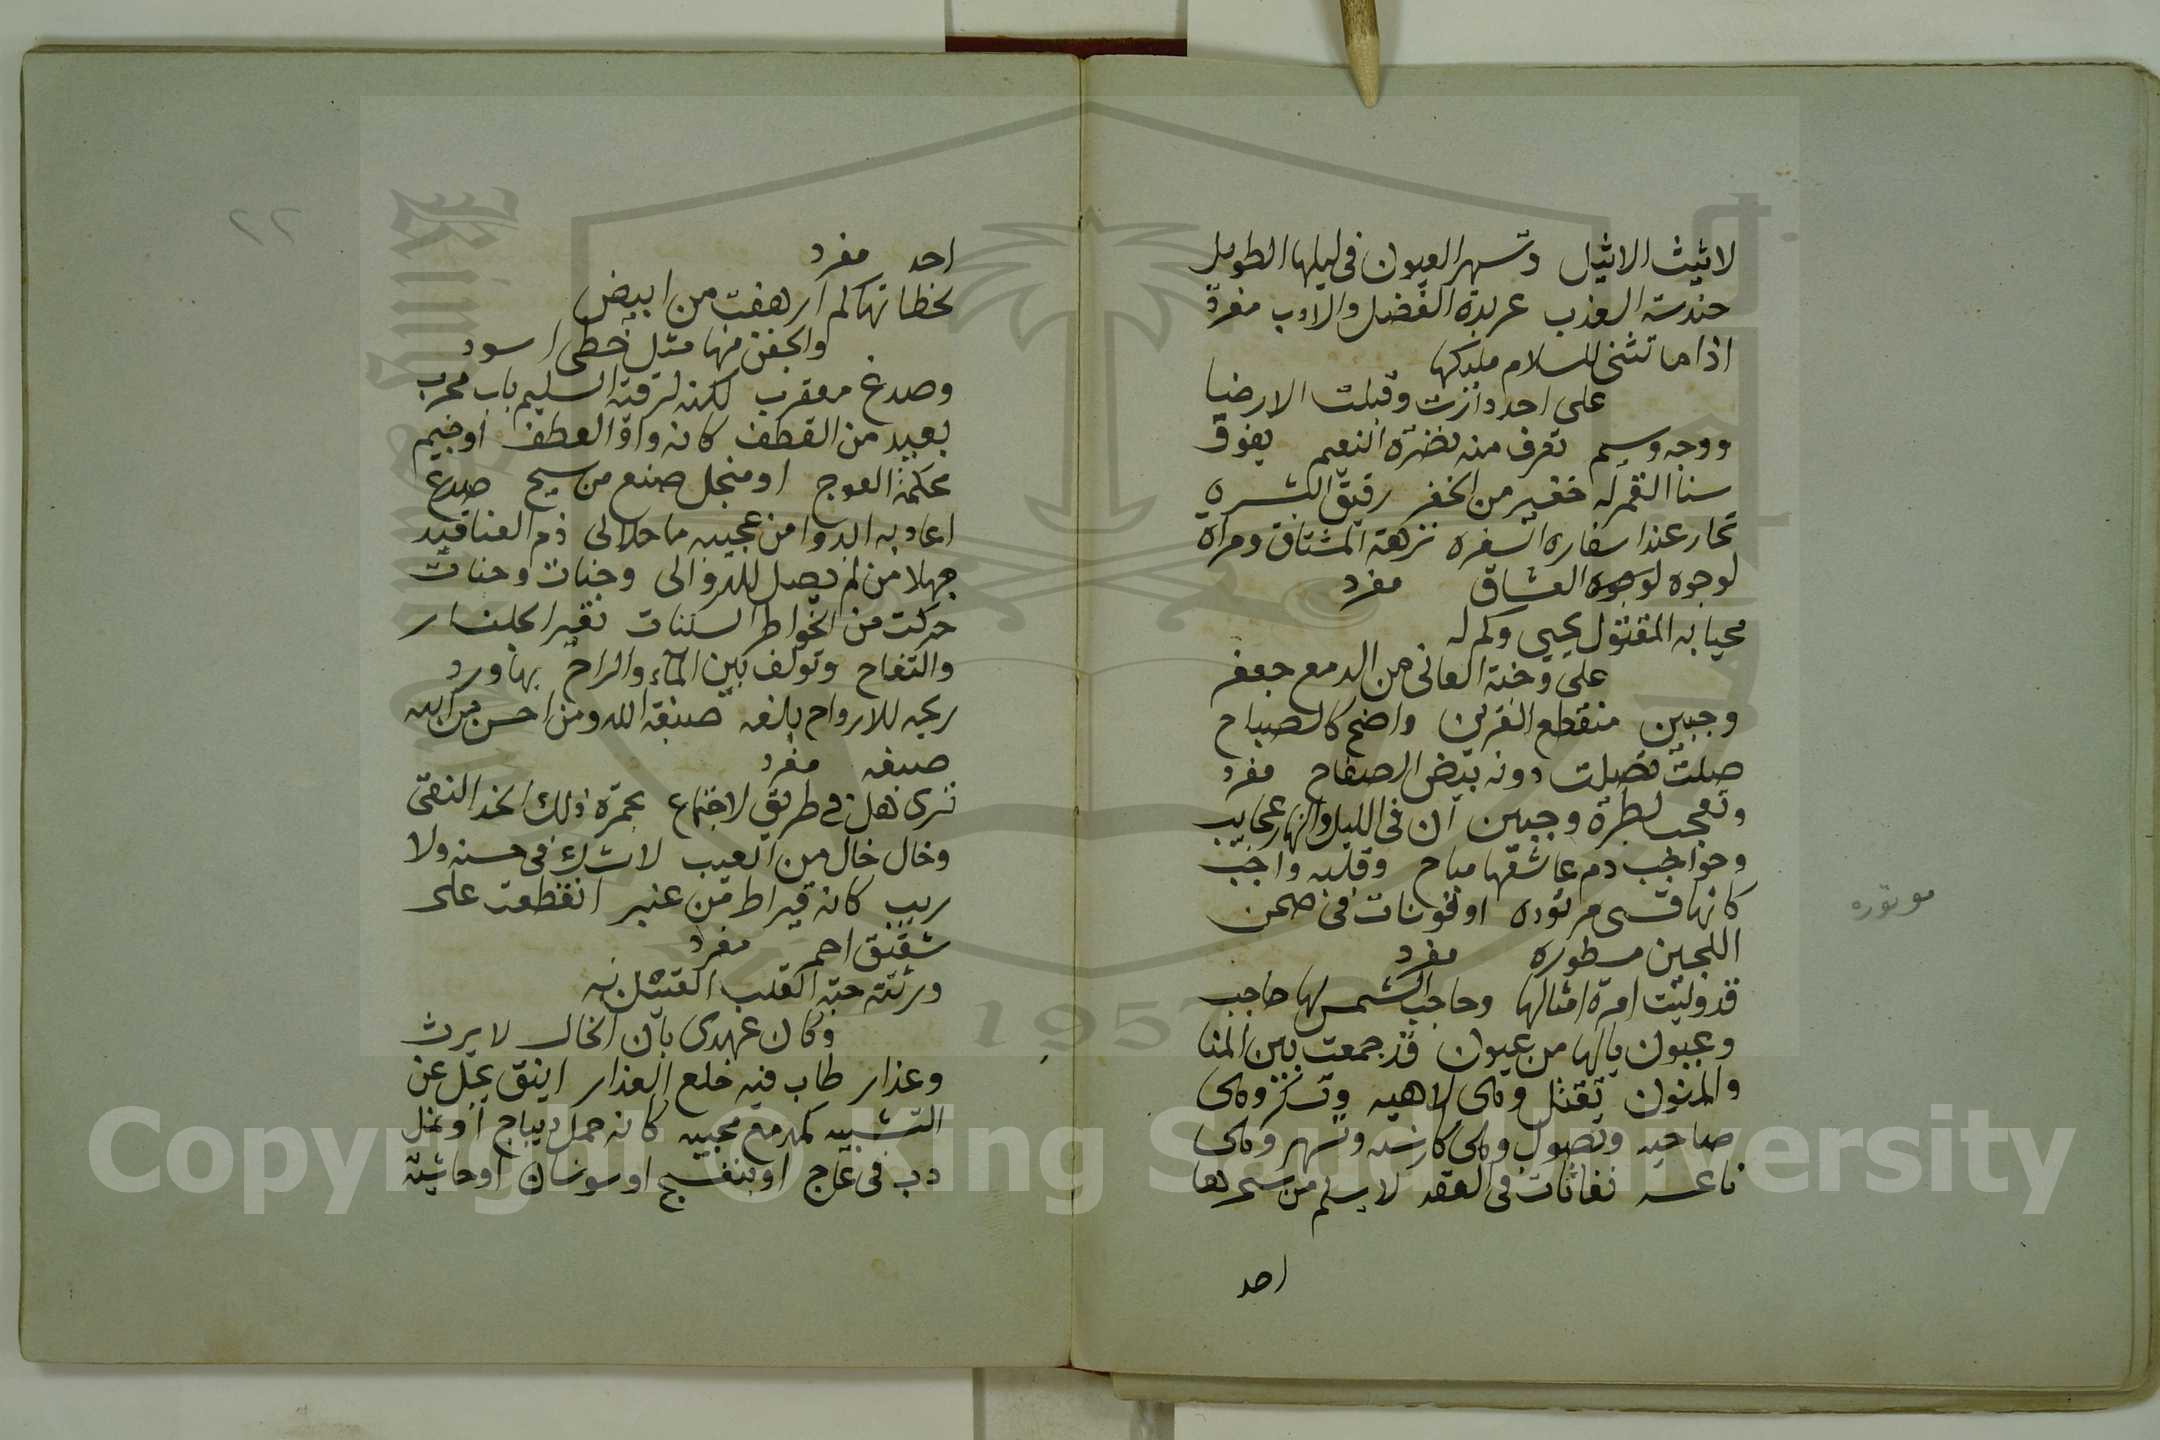 لاثيث الاثيل وتسهر العيون في ليلها الطويل
حندسة العذب عريدة الفضل والادب مفرد
اذا ما تثنى للسلام مليكها
على احد وازت وقبلت الارضيا
ووجه وسيم تعرف منه نضرة النعيم يفوق
سنا القمر له خفير من الخفر رقيق البشره
تحار عند اسفاره السفره نزهة المشتاق ومراة
لوجوه لوجوه العشاق مفرد
محيا به المقتول يحيى وكم له
على وجنة العاني من الدمع جعفر
وجبين منقطع القرين واضح كالصباح
صلت نصلت دونه بيض الصفاح مفرد
وتعجب لطرة وجبين ان في الليل والنهار عجايب
وحواجب دم عاشقها مباح وقلبه واجب
كانها قسى موتوره او نونات في صحن
اللجين مسطوره مفرد
قد وليت امرة امثالها وحاجب الشمس لها حاجب
وعيون يالها من عيون قد جمعت بين المنا
والمنون تقتل وهى لاهيه وتسكر وهى
صاحيه وتصول وهى كارسه وتسهر وهى
ناعسه نفاثات في العقد لا يسلم من سحرها
احد
موتوره
٢٢
احد مفرد
لحظاتها كم ارهفت من ابيض
والجفن منها مثل خطى اسود
وصدغ معقرب لكنه لرقته السليم باب مجرب
بعيد من القطف كانه واو العطف او جيم
محكمة العوج او منجل صنع من سبج صدغ
اعاد به الدوا من عجيبه ما حلا لي ذم العناقيد
جهلا من لم يصل للدوالي وجنات وجنات
حركت من الخواطر السكنات تغير الجلنار
والتفاح وتولف بين الماء والراح بها ورد
ريحه للارواح بالغه صبغة الله ومن احسن من الله
صبغه مفرد
ترى هل في طريق لاجتماع بحمرة ذلك الخد النقي
وخال خال من العيب لا شك في حسنه ولا
ريب كانه قيراط من عنبر انقطعت على
شقيق احمر مفرد
ورثته حبة القلب القتيل به
وكان عهدى بان الخال لا يرث
وعذار طاب فيه خلع العذار اينق يجل عن
التشبيه كمدمع محبيه كانه حمل ديباج او نمل
دب في عاج او بنفسج او سوسان او حاشية